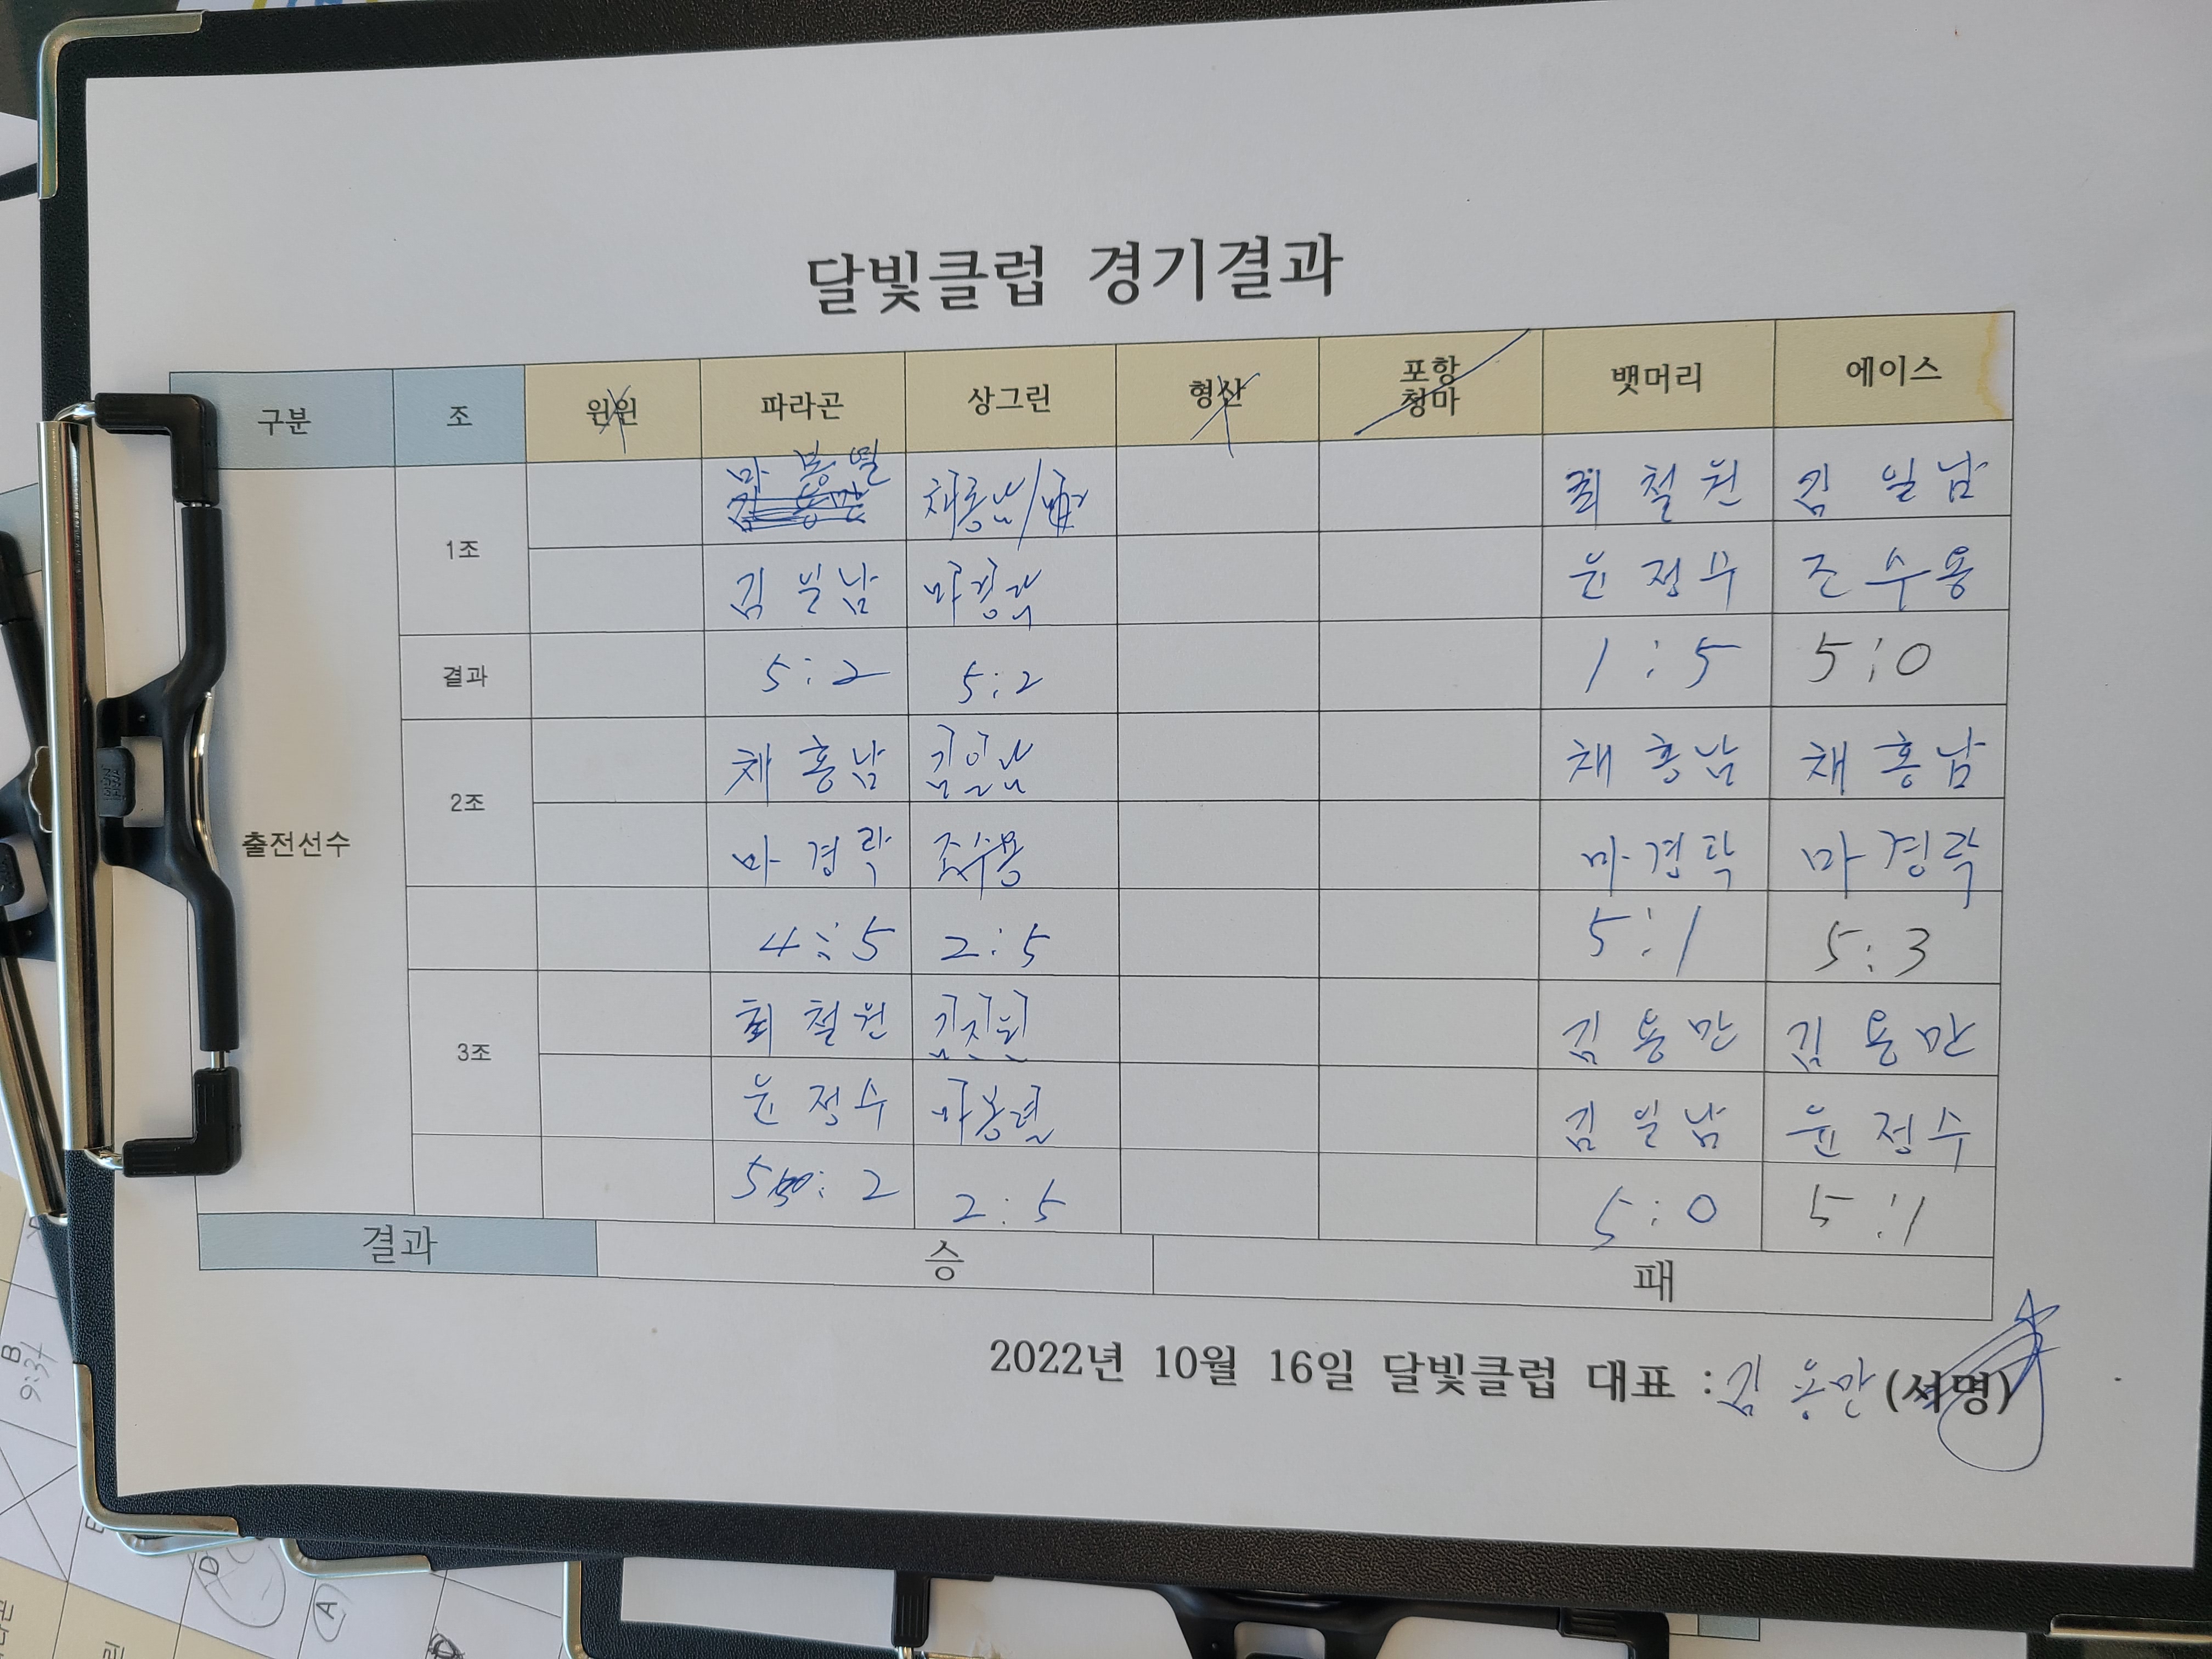 달빛클럽 경기결과
구분 조 윈윈 파라곤 상그린 형산 포항 청마 뱃머리 에이스
출전선수
1조
마 봉열 채홍남 최 철 원 김 일 남
김 용 만
김 일 남 마경락 윤 정 수 조 수 용
결과 5:2 5:2 1:5 5:0
2조
채 홍 남 김일남 채 홍 남 채 홍 남
마 경 락 조수용 마 경 락 마 경 락
4:5 2:5 5:1 5:3
3조
최 철 원 김진원 김 용 만 김 용 만
윤 정 수 마봉열 김 일 남 윤 정 수
5 : 2 2:5 5:0 5:1
결과 승 패
2022년 10월 16일 달빛클럽 대표 : 김 용만 (서명)
B
9:31
D
A